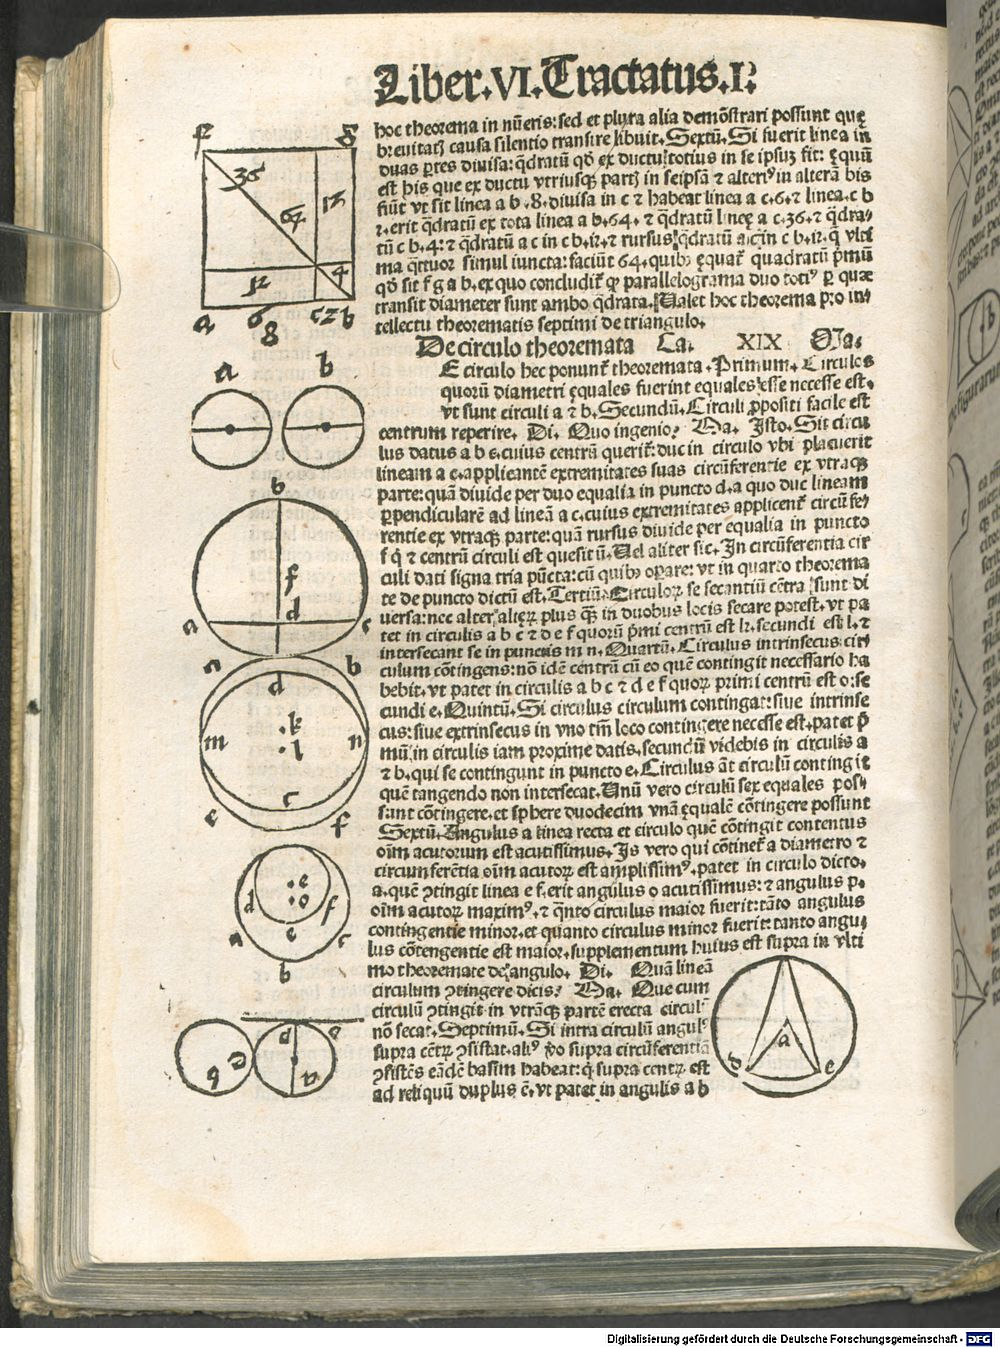 Liber.VI.Tractatus.I.
hoc theorema in nũeris: sed et plura alia demõstrari possunt quę
breuitatꝭ causa silentio transire libuit. Sextũ. Si fuerit linea in
duas ꝑtes diuisa: q̃dratũ qđ ex ductu totius in se ipsuʒ fit: ęquũ
est his que ex ductu vtriusqꝫ partꝭ in seipsã ⁊ alteriꝰ in alterã bis
fiũt vt sit linea a b .8. diuisa in c ⁊ habeat linea a c.6.⁊ linea.c b
2. erit q̃dratũ ex tota linea a b.64. ⁊ q̃dratũ linęę a c.36.⁊ q̃dra-
tũ c b.4: ⁊ q̃dratũ a c in c b.12.⁊ rursus q̃dratũ a c in c b.12. q̃ vlti
ma q̃ttuor simul iuncta: faciũt 64. quibꝰ ęquat̃ quadratũ pꝛimũ
qđ sit f g a b. ex quo concludit̃ ꝙ parallelograma duo totiꝰ ꝑ quæ
transit diameter sunt ambo q̃drata. Valet hoc theorema pꝛo in-
tellectu theorematis septimi de triangulo.
De circulo theoremata Ca. XIX Ma.
E circulo hec ponunt̃ theoremata. Primum. Circulos
quorũ diametri ęquales fuerint equales esse necesse est.
vt sunt circuli a ⁊ b. Secundũ. Circuli ꝓpositi facile est
centrum reperire. Di. Quo ingenio? Ma. Isto. Sit circu
lus datus a b c. cuius centrũ querit̃: duc in circulo vbi placuerit
lineam a c. applicantẽ extremitates suas circũferentie ex vtraqꝫ
parte: quã diuide per duo equalia in puncto d. a quo duc lineam
ꝑpendicularẽ ad lineã a c. cuius extremitates applicent̃ circũfe-
rentie ex vtraqꝫ parte: quã rursus diuide per equalia in puncto
f q̃ ⁊ centrũ circuli est quesitũ. Uel aliter sic. In circũferentia cir
culi dati signa tria pũcta: cũ quibꝰ opare: vt in quarto theorema
te de puncto dictũ est. Tertiũ. Circuloꝝ se secantiũ cẽtra sunt di
uersa: nec alter alięꝝ plus qꝫ in duobus locis secare potest. vt pa
tet in circulis a b c ⁊ d e f quorũ pꝛimi centrũ est k. secundi est l. ⁊
intersecant se in punctis m n. Quartũ. Circulus intrinsecus cir
culum cõtingens: nõ idẽ centrũ cũ eo quẽ contingit necessario ha
bebit. vt patet in circulis a b c ⁊ d e f quoꝝ primi centrũ est o: se
cundi e. Quintũ. Si circulus circulum contingat: siue intrinse
cus: siue extrinsecus in vno tm̃ loco contingere necesse est. patet p̃
mũ in circulis iam proxime datis. secundũ videbis in circulis a
⁊ b. qui se contingunt in puncto e. Circulus ãt circulũ contingit
quẽ tangendo non intersecat. Unũ vero circulũ sex equales pos-
sunt cõtingere. et sphere duodecim vnã ęqualẽ cõtingere possunt
Sextũ. Angulus a linea recta et circulo quẽ cõtingit contentus
oĩm acutorum est acutissimus. Is vero qui cõtinet̃ a diametro ⁊
circumferẽtia oĩm acutoꝝ est amplissimꝰ. patet in circulo dicto.
a. quẽ ꝯtingit linea e f. erit angulus o acutissimus: ⁊ angulus p.
oĩm acutoꝝ maximꝰ. ⁊ q̃nto circulus maior fuerit: tãto angulus
contingentie minor. et quanto circulus minor fuerit: tanto angu-
lus cõtengentie est maior. supplementum huius est supra in vlti
mo theoremate de angulo. Di. Quã lineã
circulum ꝯtingere dicis? Ma. Que cum
circulũ ꝯtingit in vtrãqꝫ partẽ erecta circulũ
nõ secat. Septimũ. Si intra circulũ angulꝰ
supra cẽtꝝ ꝯsistat. aliꝰ ṽo supra circũferentiã
ꝯsistẽs eãdẽ basim habeat: q̃ supra centꝝ est
ad reliquũ duplus ẽ. vt patet in angulis a b
f g
36
64 12
12 4
a 6 c 2 b
8
a b
b
f
d
a c
a b
d
k
m n
l
c
e f
e
o
d f
e
a c
b
d e
e
b a
a
d e
Digitalisierung gefördert durch die Deutsche Forschungsgemeinschaft - DFG